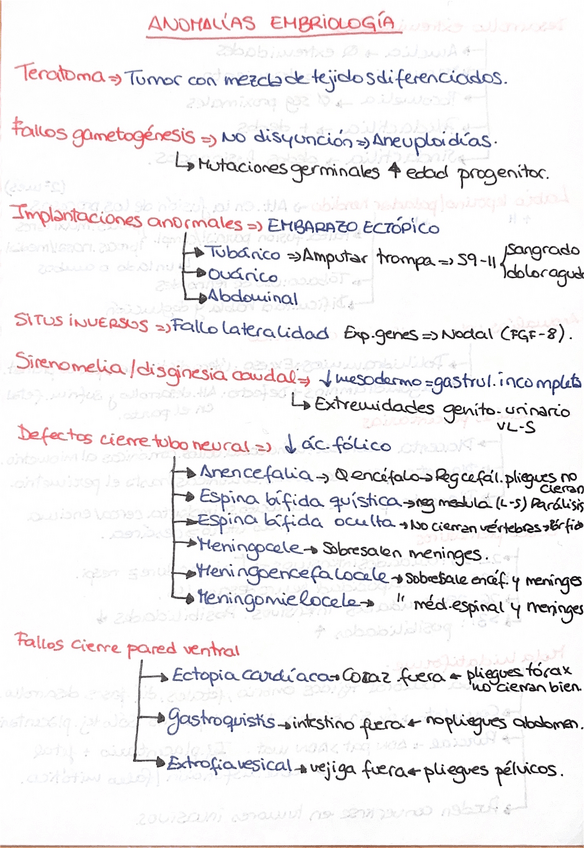 ANOMALÍAS EMBRIOLOGÍA
Teratoma => Tumor con mezcla de tejidos diferenciados.
Fallos gametogénesis => No disyunción => Aneuploidías.
↳ Mutaciones germinales ↑ edad progenitor.
Implantaciones anormales => EMBARAZO ECTÓPICO
→ Tubárico => Amputar trompa => S9-11 { Sangrado
dolor agudo
→ Ovárico
→ Abdominal
SITUS INVERSUS => Fallo lateralidad Exp. genes => Nodal (FGF-8).
Sirenomelia / disginesia caudal => ↓ mesodermo = gastrul. incompleta
↳ Extremidades genito-urinario
VL-S
Defectos cierre tubo neural => ↓ ác. fólico
→ Anencefalia → Ø encéfalo → Reg cefál. pliegues no
cierran
→ Espina bífida quística → reg medula (L-S) Parálisis
→ Espina bífida oculta → No cierran vértebras →
→ Meningocele → Sobresalen meninges.
→ Meningoencefalocele → Sobresale encéf. y meninges
→ Meningomielocele → " méd. espinal y meninges
Fallos cierre pared ventral
→ Ectopia cardíaca → Coraz fuera ← pliegues tórax
no cierran bien.
→ Gastroquistis → intestino fuera ← no pliegues abdomen.
→ Extrofia vesical → vejiga fuera ← pliegues pélvicos.